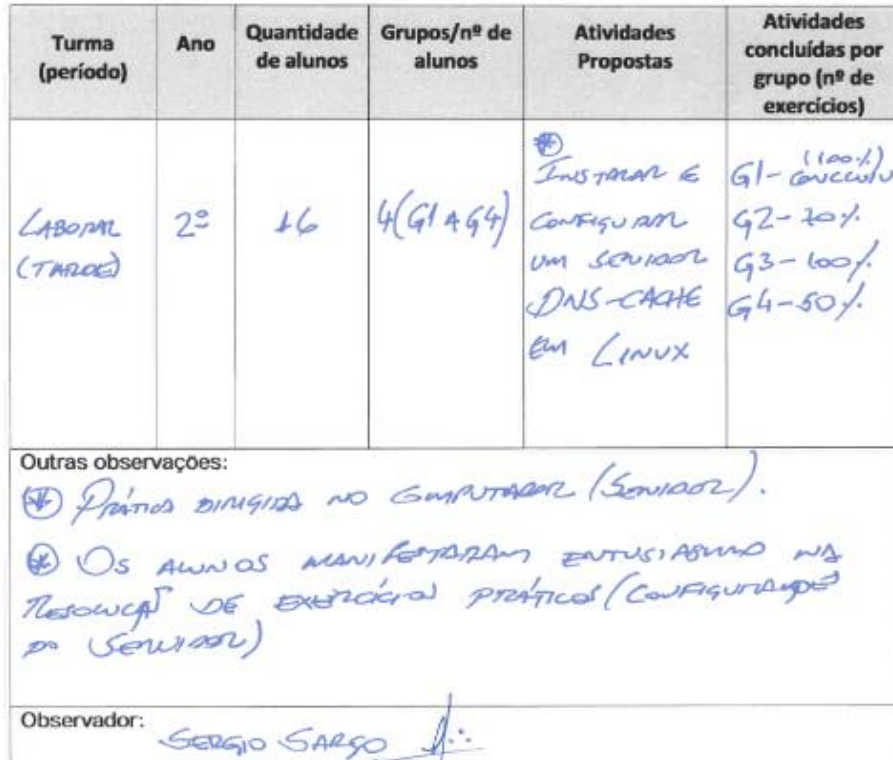 Turma (período)
Ano
Quantidade de alunos
Grupos/nº de alunos
Atividades Propostas
Atividades concluídas por grupo (nº de exercícios)
LABORAL
(TARDE)
2º
16
4(G1 A G4)
INSTALAR E
CONFIGURAR
UM SERVIDOR
DNS-CACHE
EM LINUX
G1- (100%) CONCLUIU
G2-70%
G3-100%
G4-50%
Outras observações:
* PRÁTICA DIRIGIDA NO COMPUTADOR (SERVIDOR).
* OS ALUNOS MANIFESTARAM ENTUSIASMO NA
RESOLUÇÃO DE EXERCÍCIOS PRÁTICOS (CONFIGURAÇÕES
DO SERVIDOR)
Observador:
SERGIO SARGO